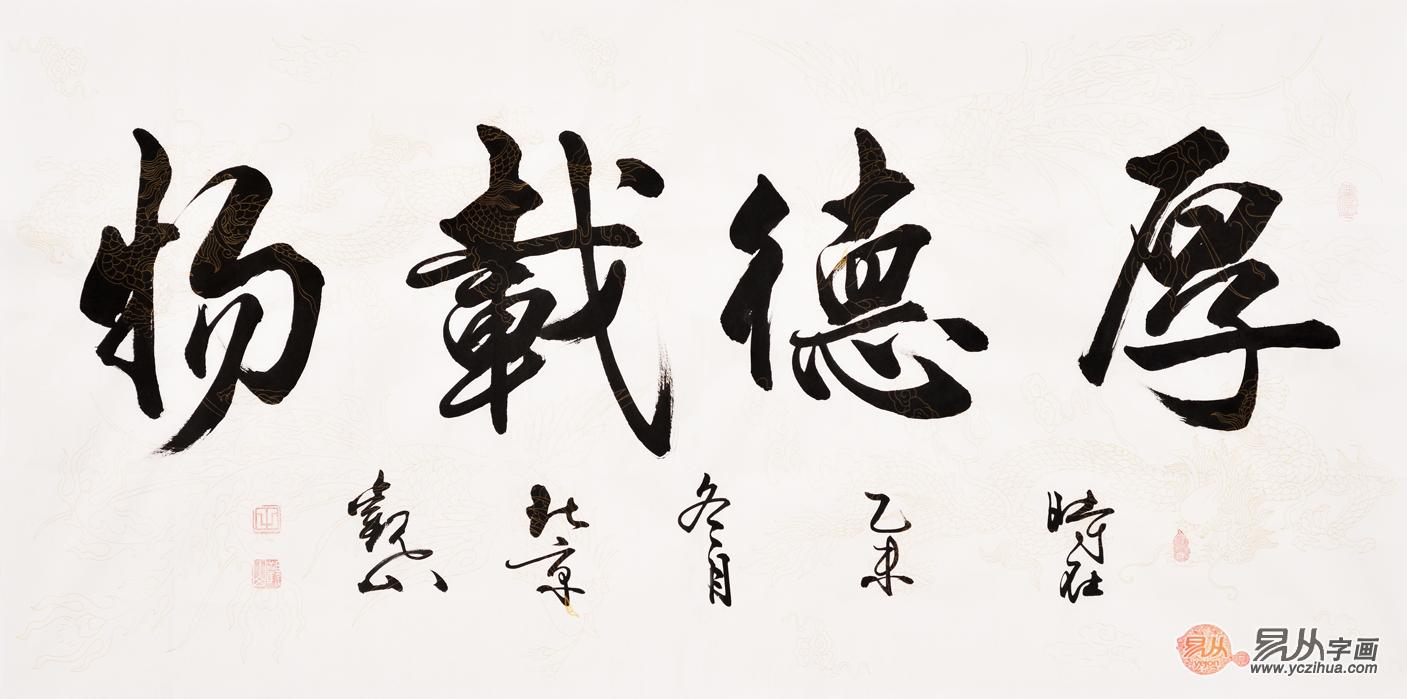 厚德載物
時在
乙未
冬月
北京
觀山
易从
易从字画
www.yczihua.com